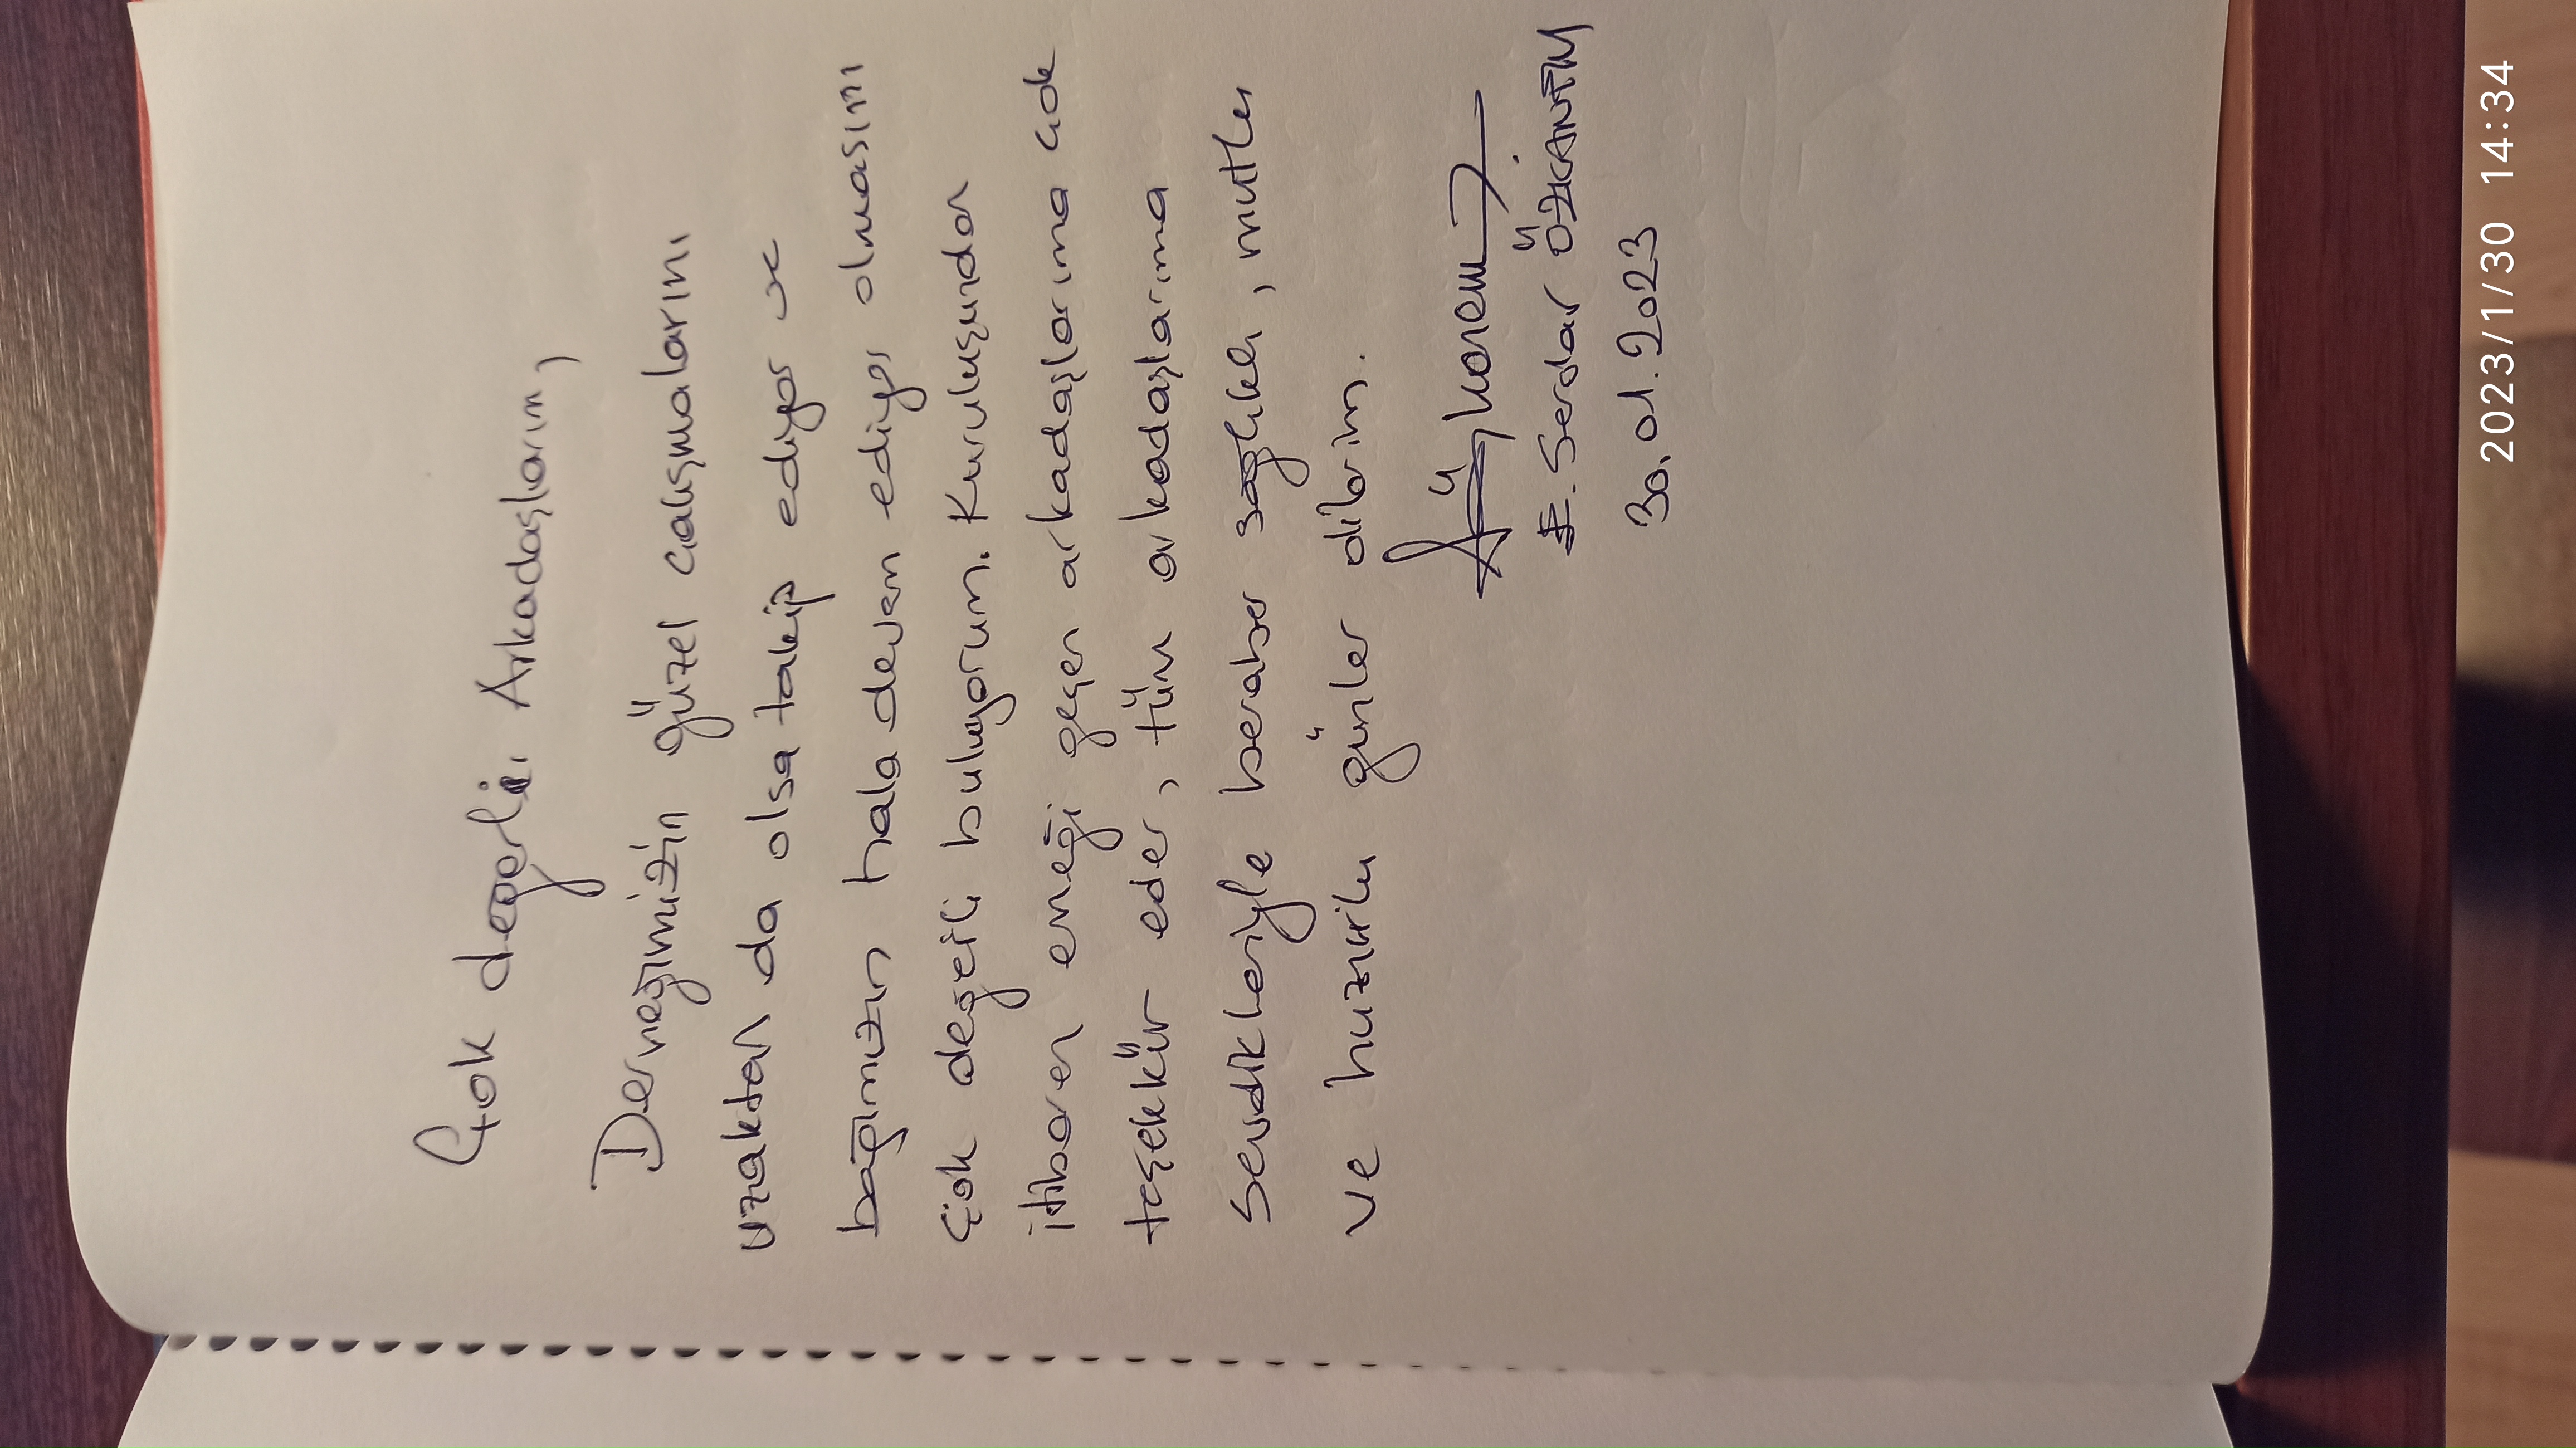 Çok değerli Arkadaşlarım,
Derneğimizin güzel çalışmalarını
uzaktan da olsa takip ediyor ve
bağımızın hala devam ediyor olmasını
çok değerli buluyorum. Kuruluşundan
itibaren emeği geçen arkadaşlarıma çok
teşekkür eder, tüm arkadaşlarıma
sevdikleriyle beraber sağlıklı, mutlu
ve huzurlu günler dilerim.
E. Serdar
30.01.2023
2023/1/30 14:34